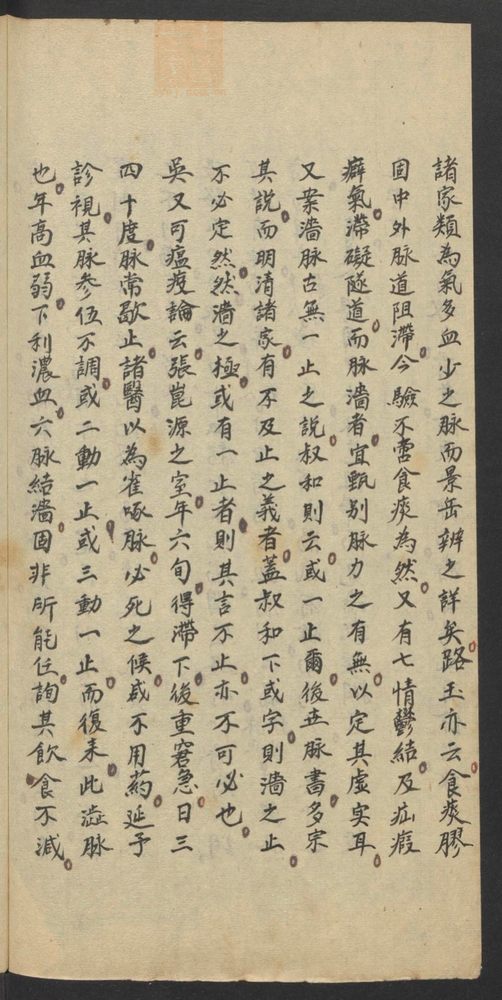 諸家類為氣多血少之脉而景岳辨之詳矣路玉亦云食痰膠
固中外脉道阻滯今驗不啻食痰為然又有七情鬱結及疝瘕
癖氣滯礙隧道而脉濇者宜甄别脉力之有無以定其虛实耳
又案濇脉古無一止之說叔和則云或一止爾後世脉書多宗
其說而明清諸家有不及止之義者蓋叔和下或字則濇之止
不必定然然濇之極或有一止者則其言不止亦不可必也
吳又可瘟疫論云張崑源之室年六旬得滯下後重窘急日三
四十度脉常歇止諸醫以為雀啄脉必死之候咸不用葯延予
診視其脉参伍不調或二動一止或三動一止而復来此澁脉
也年高血弱下利濃血六脉結濇固非所能任詢其飲食不減